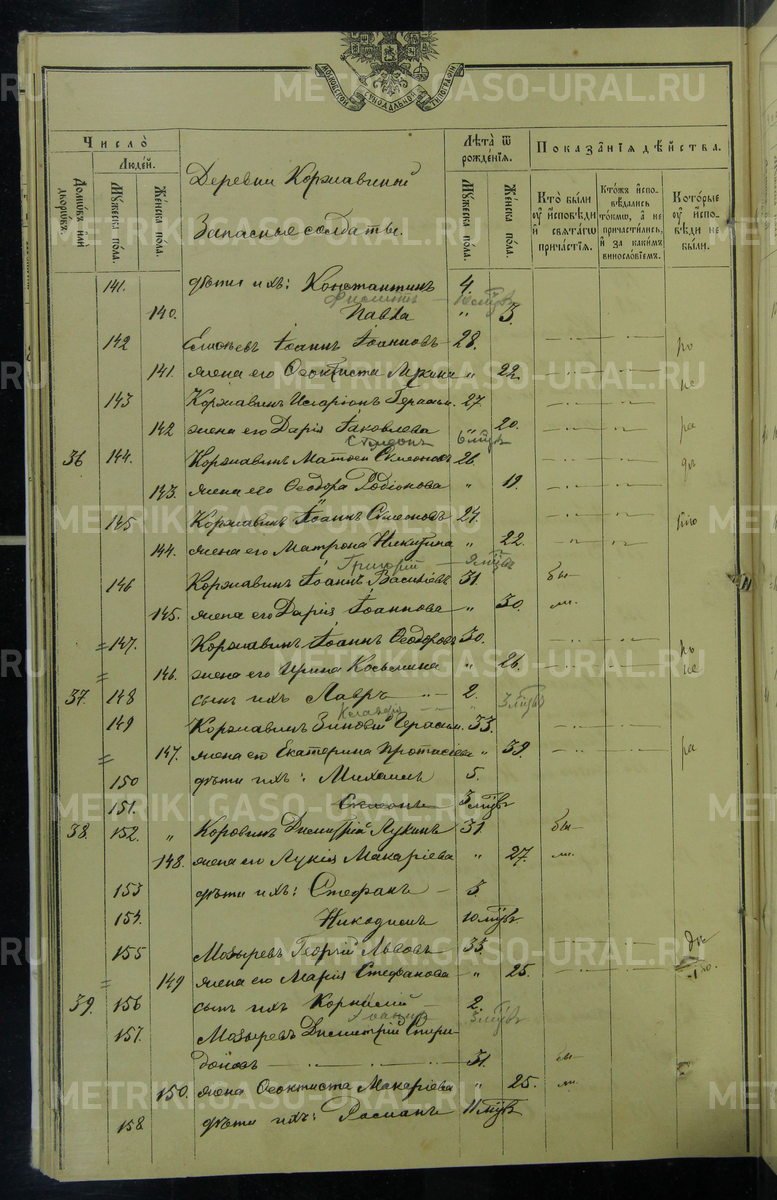 МОСКОВСКОЙ СѴНОДАЛЬНОЙ ТИПОГРАФІИ
Число̀
Людей.
Домѡвъ или дворѡвъ.
Мꙋжеска пола.
Женска пола.
Деревни Коржавиной
Запасные солдаты.
Лѣта ѿ рожденїѧ.
Мꙋжеска пола.
Женска пола.
Показанїѧ дѣйства.
Кто были ᲂу исповѣди и свѧтагѡ причастїѧ.
Ктожъ исповѣдались токмѡ, а не причастились, и за какимъ винословїемъ.
Которые ᲂу исповѣди не были.
141. дѣти ихъ: Константинъ 4.
140. Павла " 3.
142 Іоаннъ Іоанновъ 28.
141. жена его Ѳеоктиста " 22.
143 Коржавинъ Иларіонъ Герасим. 27.
142 жена его Дарія Іаковлева 20.
Стефанъ 6 мцвъ
36 144. Коржавинъ Матѳей Симеоновъ 26.
143. жена его Ѳеодора Родіонова " 19.
145 Коржавинъ Іоаннъ Симеоновъ 24.
144. жена его Матрона Никитина " 22.
Григорій
146 Коржавинъ Іоаннъ Василіевъ 31. бы—
145. жена его Дарія Іоаннова " 30. ли.
147. Коржавинъ Іоаннъ Ѳеодоровъ 30.
146. жена его Ирина Косьмина " 26.
37. 148 сынъ ихъ Лавръ 2. 3 мцвъ
149 Коржавинъ Зиновій Герасим. 33.
147. жена его Екатерина Протасіева " 39.
150 дѣти ихъ: Михаилъ 5.
151. Симеонъ 3 мцвъ
38. 152. " Коровинъ Димитрій Лукинъ 31 бы—
148. жена его Лукія Макаріева " 27. ли.
153 дѣти ихъ: Стефанъ — 3.
154. Никодимъ 10 мцвъ
155 Мозыревъ Георгій Львовъ 35.
149 жена его Марія Стефанова " 25.
39. 156 сынъ ихъ Корнилій 2.
Іоаннъ 3 мцвъ
157. Мозыревъ Димитрій Спири-
доновъ 31. бы—
150. жена Ѳеоктиста Макаріева " 25. ли.
158 дѣти ихъ: 11 мцвъ
METRIKI.GASO-URAL.RU